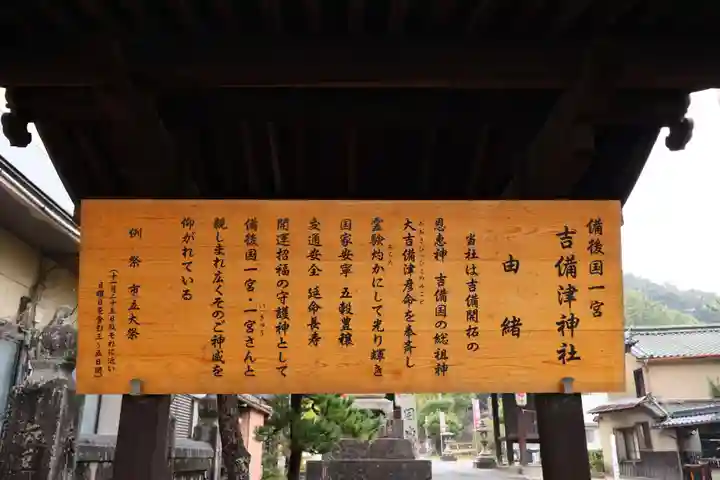 備後国一宮
吉備津神社
由緒
当社は吉備開拓の
恩恵神 吉備国の総祖神
おおきびつひこのみこと
大吉備津彦命を奉斉し
霊験灼かにして光り輝き
国家安寧 五穀豊穣
交通安全 延命長寿
開運招福の守護神として
備後国一宮・一宮さんと
いっきゅう
親しまれ広くそのご神威を
仰がれている
例祭 市立大祭
(十一月二十五日及それに近い
日曜日を含む三～五日間)